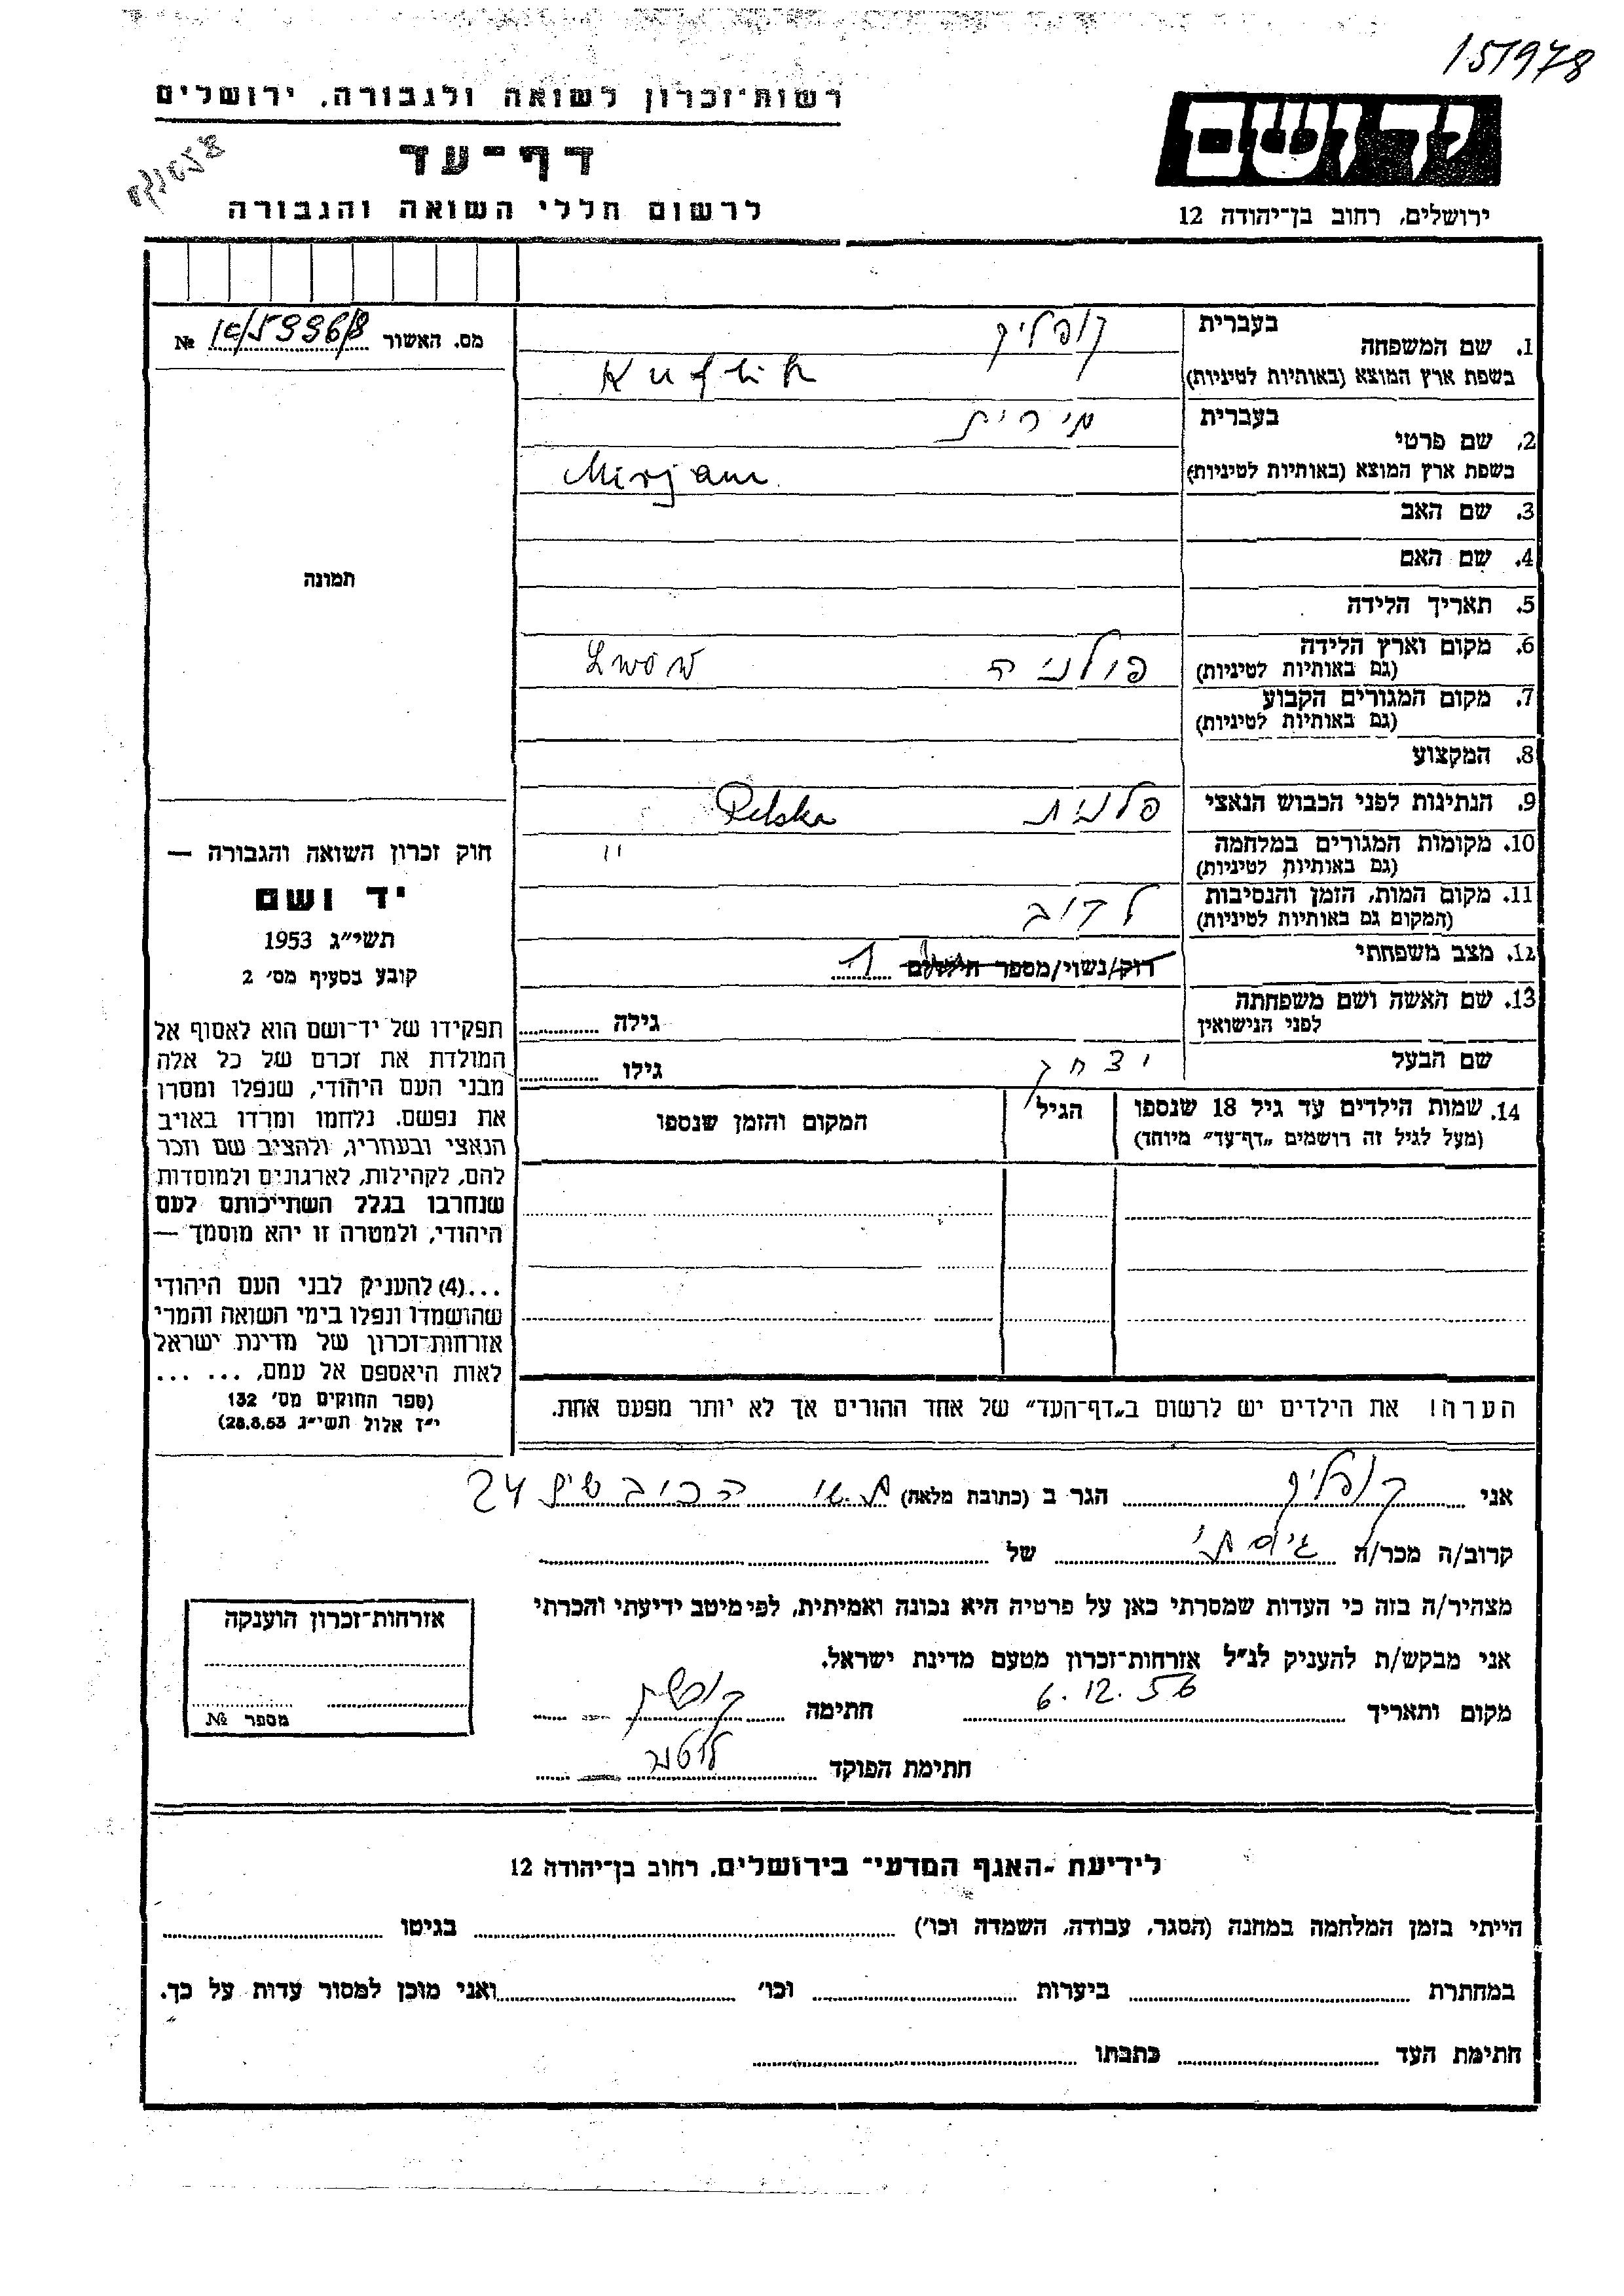 151978
רשות־זכרון לשואה ולגבורה, ירושלים
דף־עד
לרשום חללי השואה והגבורה
יד ושם
ירושלים, רחוב בן־יהודה 12
מס. האשור №
1. שם המשפחה בעברית קופליק
בשפת ארץ המוצא (באותיות לטיניות) Kuflik
2. שם פרטי בעברית
בשפת ארץ המוצא (באותיות לטיניות) Mirjam
3. שם האב
4. שם האם
5. תאריך הלידה
6. מקום וארץ הלידה פולניה Lwów
(גם באותיות לטיניות)
7. מקום המגורים הקבוע
(גם באותיות לטיניות)
8. המקצוע
9. הנתינות לפני הכבוש הנאצי פלנית Polska
10. מקומות המגורים במלחמה "
(גם באותיות לטיניות)
11. מקום המות, הזמן והנסיבות
(המקום גם באותיות לטיניות)
12. מצב משפחתי רוק/נשוי/מספר הילדים 1
13. שם האשה ושם משפחתה
לפני הנישואין גילה
שם הבעל יצחק גילו
14. שמות הילדים עד גיל 18 שנספו הגיל המקום והזמן שנספו
(מעל לגיל זה רושמים „דף־עד" מיוחד)
הערה! את הילדים יש לרשום ב„דף־העד" של אחד ההורים אך לא יותר מפעם אחת.
תמונה
חוק זכרון השואה והגבורה —
יד ושם
תשי"ג 1953
קובע בסעיף מס' 2
תפקידו של יד־ושם הוא לאסוף אל
המולדת את זכרם של כל אלה
מבני העם היהודי, שנפלו ומסרו
את נפשם, נלחמו ומרדו באויב
הנאצי ובעוזריו, ולהציב שם וזכר
להם, לקהילות, לארגונים ולמוסדות
שנחרבו בגלל השתייכותם לעם
היהודי, ולמטרה זו יהא מוסמך —
...(4) להעניק לבני העם היהודי
שהושמדו ונפלו בימי השואה והמרי
אזרחות־זכרון של מדינת ישראל
לאות היאספם אל עמם, ... ...
(ספר החוקים מס' 132
י"ז אלול תשי"ג 28.8.53)
אני קופליק הגר ב (כתובת מלאה) 24
קרוב/ה מכר/ה גיסתי של
מצהיר/ה בזה כי העדות שמסרתי כאן על פרטיה היא נכונה ואמיתית, לפי מיטב ידיעתי והכרתי
אני מבקש/ת להעניק לנ"ל אזרחות־זכרון מטעם מדינת ישראל.
מקום ותאריך 6.12.56 חתימה
חתימת הפוקד
אזרחות־זכרון הוענקה
מספר №
לידיעת „האגף המדעי" בירושלים, רחוב בן־יהודה 12
הייתי בזמן המלחמה במחנה (הסגר, עבודה, השמדה וכו') בגיטו
במחתרת ביערות וכו' ואני מוכן למסור עדות על כך.
חתימת העד כתבתו